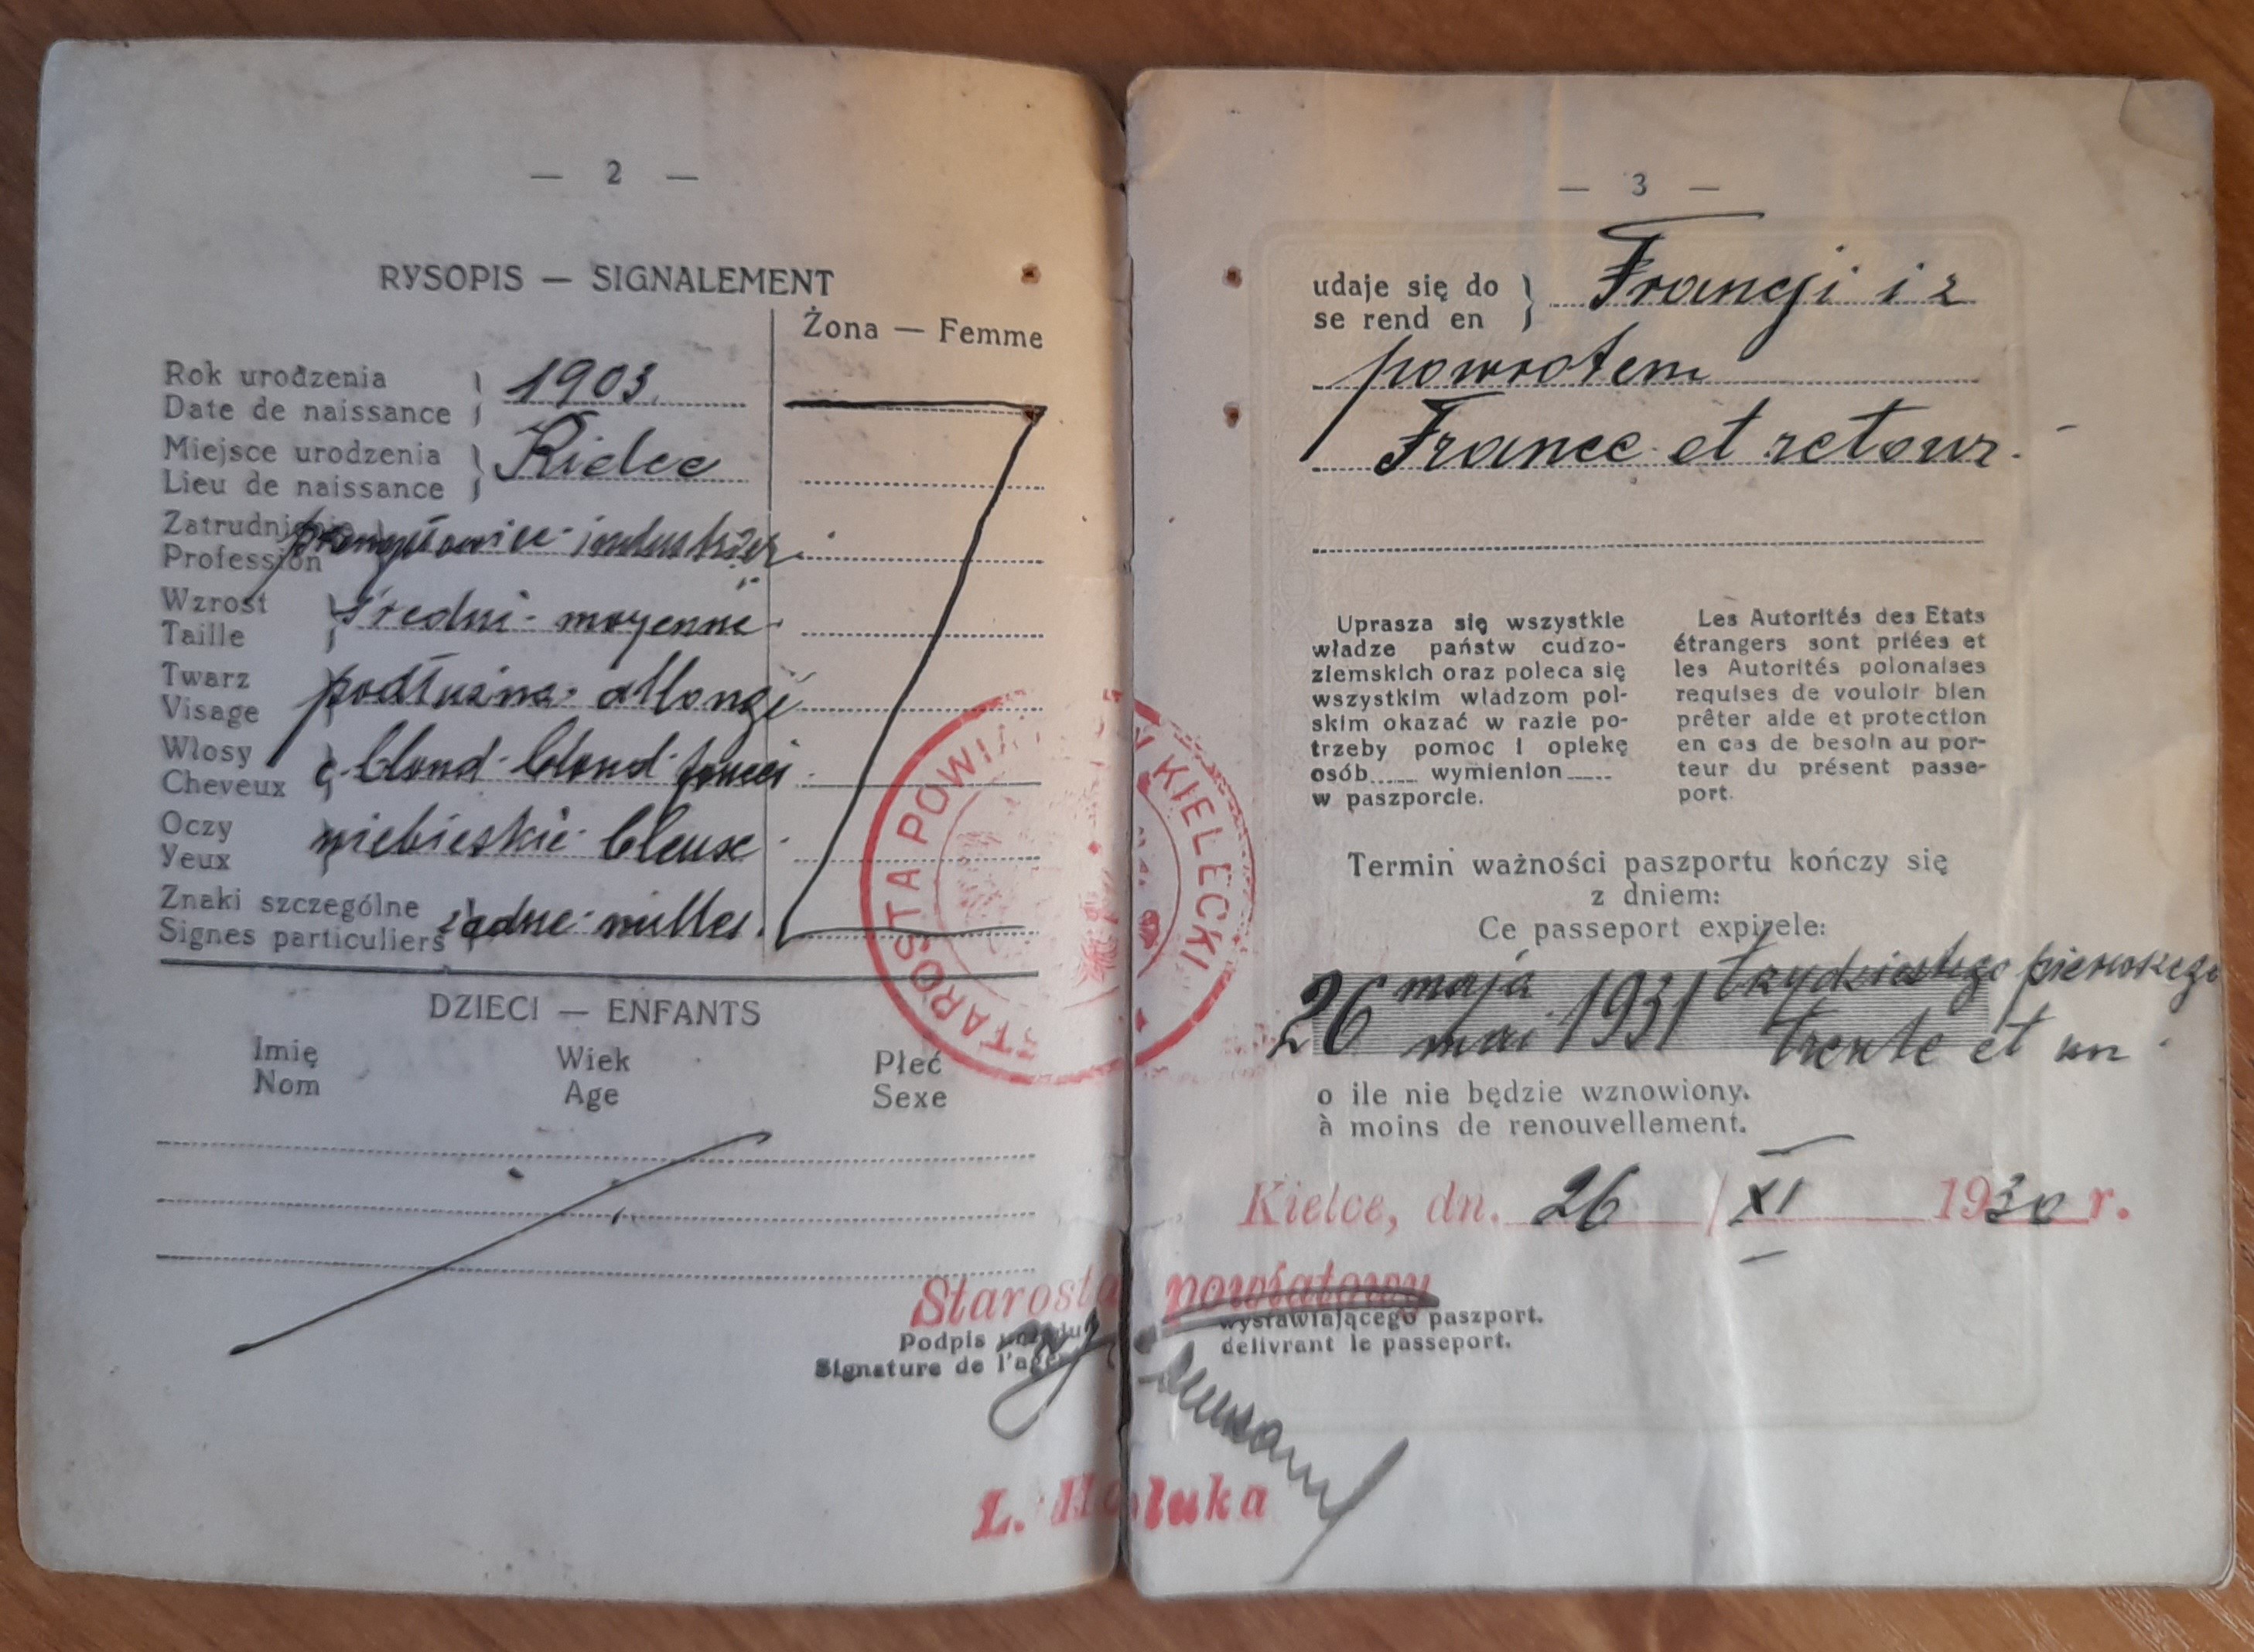 — 2 —
RYSOPIS — SIGNALEMENT
Żona — Femme
Rok urodzenia
Date de naissance
1903.
Miejsce urodzenia
Lieu de naissance
Kielce
Zatrudnienie
Profession
przemysłowiec - industriel
Wzrost
Taille
średni - moyenne
Twarz
Visage
podłużna - allongé
Włosy
Cheveux
c. blond - blond foncé
Oczy
Yeux
niebieskie - bleux
Znaki szczególne
Signes particuliers
żadne - nulles.
DZIECI — ENFANTS
Imię Wiek Płeć
Nom Age Sexe
STAROSTA POWIATOWY KIELECKI
— 3 —
udaje się do
se rend en
Francji i z
powrotem
France et retour.
Uprasza się wszystkie
władze państw cudzo-
ziemskich oraz poleca się
wszystkim władzom pol-
skim okazać w razie po-
trzeby pomoc i opiekę
osób...... wymienion......
w paszporcie.
Les Autorités des Etats
étrangers sont priées et
les Autorités polonaises
requises de vouloir bien
prêter aide et protection
en cas de besoin au por-
teur du présent passe-
port.
Termin ważności paszportu kończy się
z dniem:
Ce passeport expire le:
26 maja 1931 trzydziestego pierwszego
mai trente et un
o ile nie będzie wznowiony.
à moins de renouvellement.
Kielce, dn. 26 / XI 1930 r.
Starosta powiatowy
Podpis wystawiającego paszport.
Signature de l'agent délivrant le passeport.